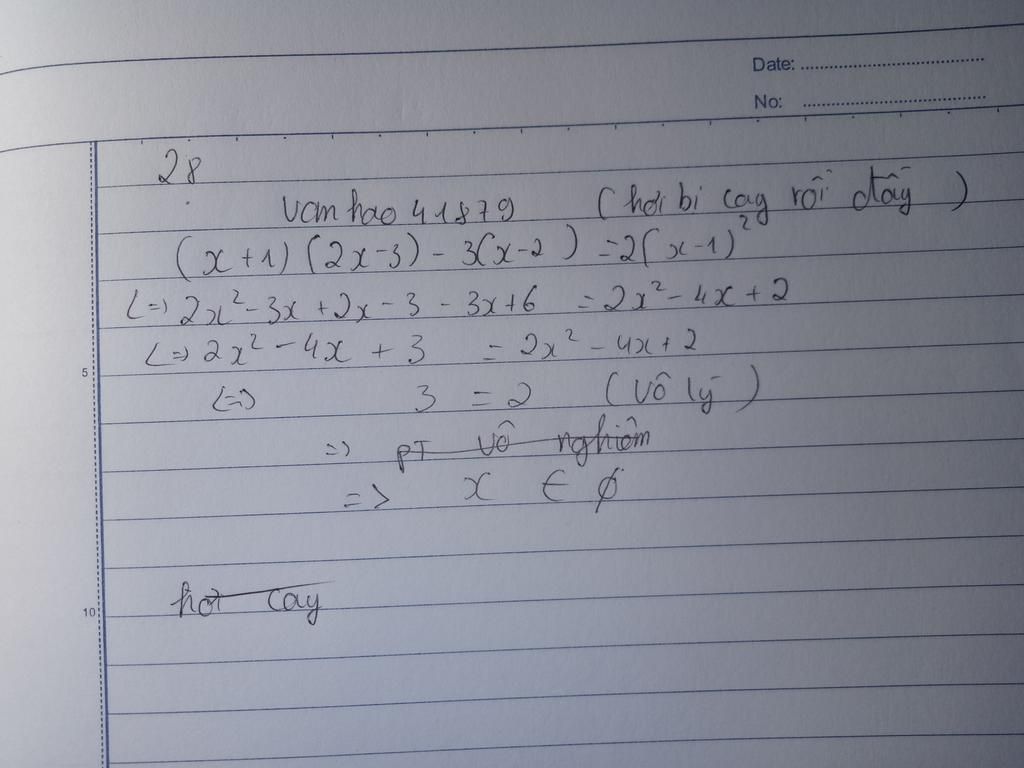 Date:
No:
28
vanhao41879 (hơi bị cay rồi đấy)
(x+1)(2x-3) - 3(x-2) = 2(x-1)²
<=> 2x² - 3x + 2x - 3 - 3x + 6 = 2x² - 4x + 2
<=> 2x² - 4x + 3 = 2x² - 4x + 2
5
<=> 3 = 2 (vô lý)
=> PT vô nghiệm
=> x ∈ ∅
10
hơi cay